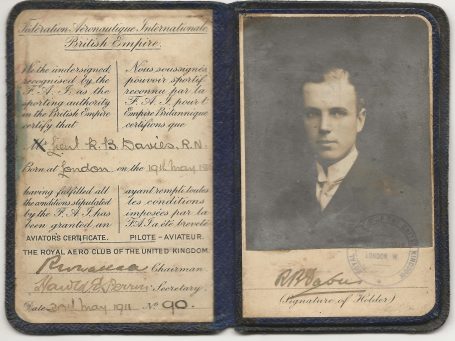 Fédération Aéronautique Internationale
British Empire
We the undersigned
recognised by the
F.A.I. as the
sporting authority
in the British Empire
certify that
Nous soussignés
pouvoir sportif
reconnu par la
F.A.I. pour l'
Empire Britannique
certifions que
Lieut R. B. Davies, R.N.
Born at London on the 19th May
having fulfilled all
the conditions stipulated
by the F.A.I. has
been granted an
AVIATOR'S CERTIFICATE.
ayant rempli toutes
les conditions
imposées par la
F.A.I. a été breveté
PILOTE-AVIATEUR.
THE ROYAL AERO CLUB OF THE UNITED KINGDOM.
Chairman
Harold E. Perrin Secretary.
Date May 1911 No 90.
ROYAL
KINGDOM
LONDON W.
R B Davies
(Signature of Holder)